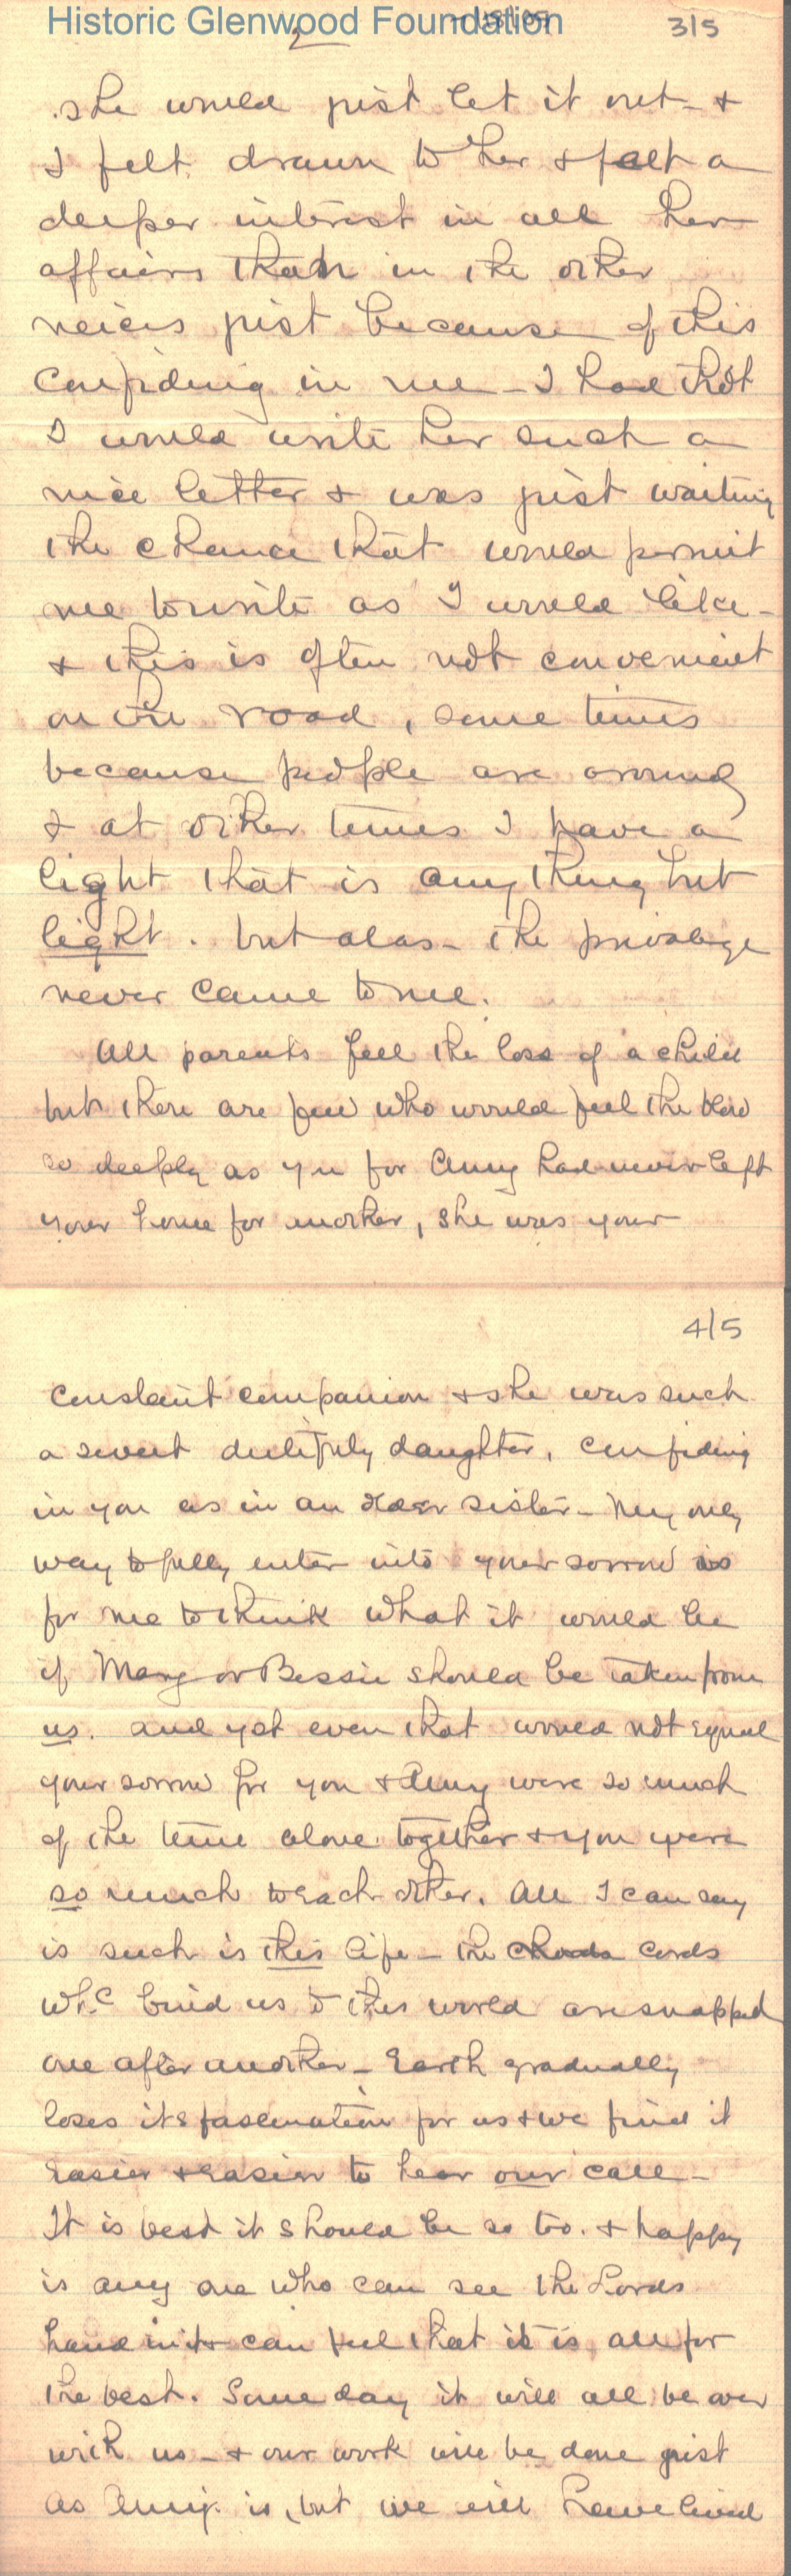 Historic Glenwood Foundation
3/5
2
she would just let it out - &
I felt drawn to her & felt a
deeper interest in all her
affairs than in the other
neices just because of this
confiding in me - I had thot
I would write her such a
nice letter & was just waiting
the chance that would permit
me to write as I would like -
& this is often not convenient
on the road, some times
because people are around
& at other times I have a
light that is any thing but
light. but alas - the privalege
never came to me.
All parents feel the loss of a child
but there are few who would feel the blow
so deeply as you for Amy had never left
your home for another, she was your
4/5
constant companion & she was such
a sweet dutifuly daughter, confiding
in you as in an older sister - My only
way to fully enter into your sorrow is
for me to think what it would be
if Mary or Bessie should be taken from
us. and yet even that would not equal
your sorrow for you & Amy were so much
of the time alone together & you were
so much to each other. All I can say
is such is this life - the cords
whc bind us to this world are snapped
one after another - Earth gradually
loses its fascination for us & we find it
easier & easier to hear our call -
It is best it should be so too. & happy
is any one who can see the Lords
hand in it & can feel that it is all for
the best. Some day it will all be over
with us - & our work will be done just
as Amy's is, but we will have lived